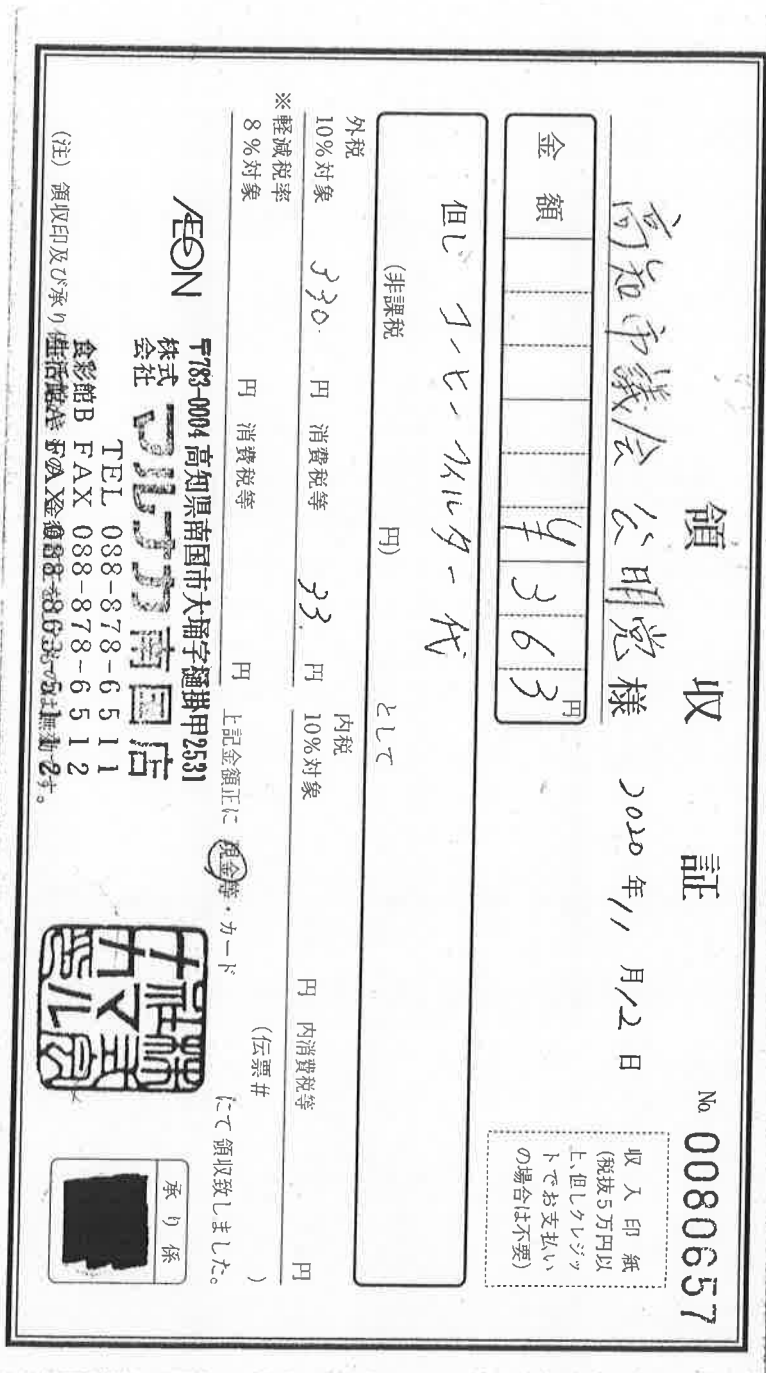 領収証
No 0080657
高知市議会 公明党様
2020年11月12日
収入印紙
(税抜5万円以
上、但しクレジッ
トでお支払い
の場合は不要)
金額 ¥363円
但し コーヒーフィルター代
(非課税 円) として
外税
10%対象 330円 消費税等 33円
内税
10%対象 円 内消費税等 円
※軽減税率
8%対象 円 消費税等 円
上記金額正に 現金等・カード (伝票# ) にて領収致しました。
ÆON
〒783-0004 高知県南国市大埇字樋掛甲2531
株式会社 マルナカ南国店
TEL 088-878-6511
食彩館B FAX 088-878-6512
生活館A FAX 088-863-5112
(注) 領収印及び承り係
無効です。
承り係